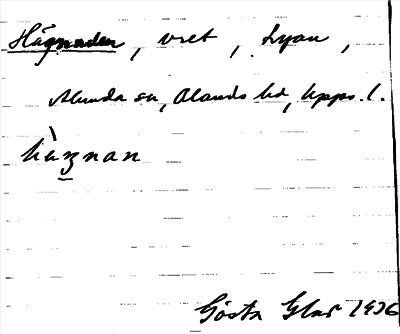 Hägnaden, vret, Lyan,
Alunda sn, Olands hd, Upps. l.
hàʒnan
Gösta Glas 1936